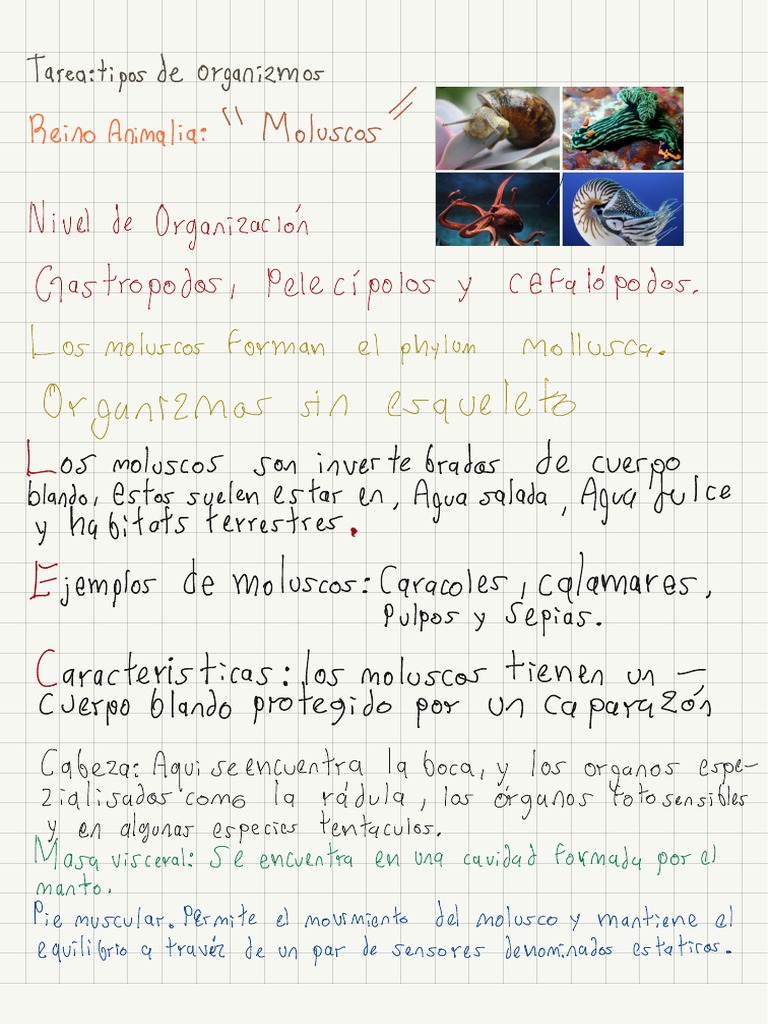 Tarea: tipos de organizmos
Reino Animalia: "Moluscos"
Nivel de Organización
Gastropodos, Pelecípolos y cefalópodos.
Los moluscos forman el phylum mollusca.
Organizmos sin esqueleto
Los moluscos son invertebrados de cuerpo
blando, estos suelen estar en, Agua salada, Agua dulce
y habitats terrestres.
Ejemplos de moluscos: Caracoles, calamares,
Pulpos y Sepias.
Caracteristicas: los moluscos tienen un -
cuerpo blando protegido por un caparazón
Cabeza: Aqui se encuentra la boca, y los organos espe-
zialisados como la rádula, los órganos fotosensibles
y en algunas especies tentaculos.
Masa visceral: Se encuentra en una cavidad formada por el
manto.
Pie muscular. Permite el movimiento del molusco y mantiene el
equilibrio a travéz de un par de sensores denominados estaticos.